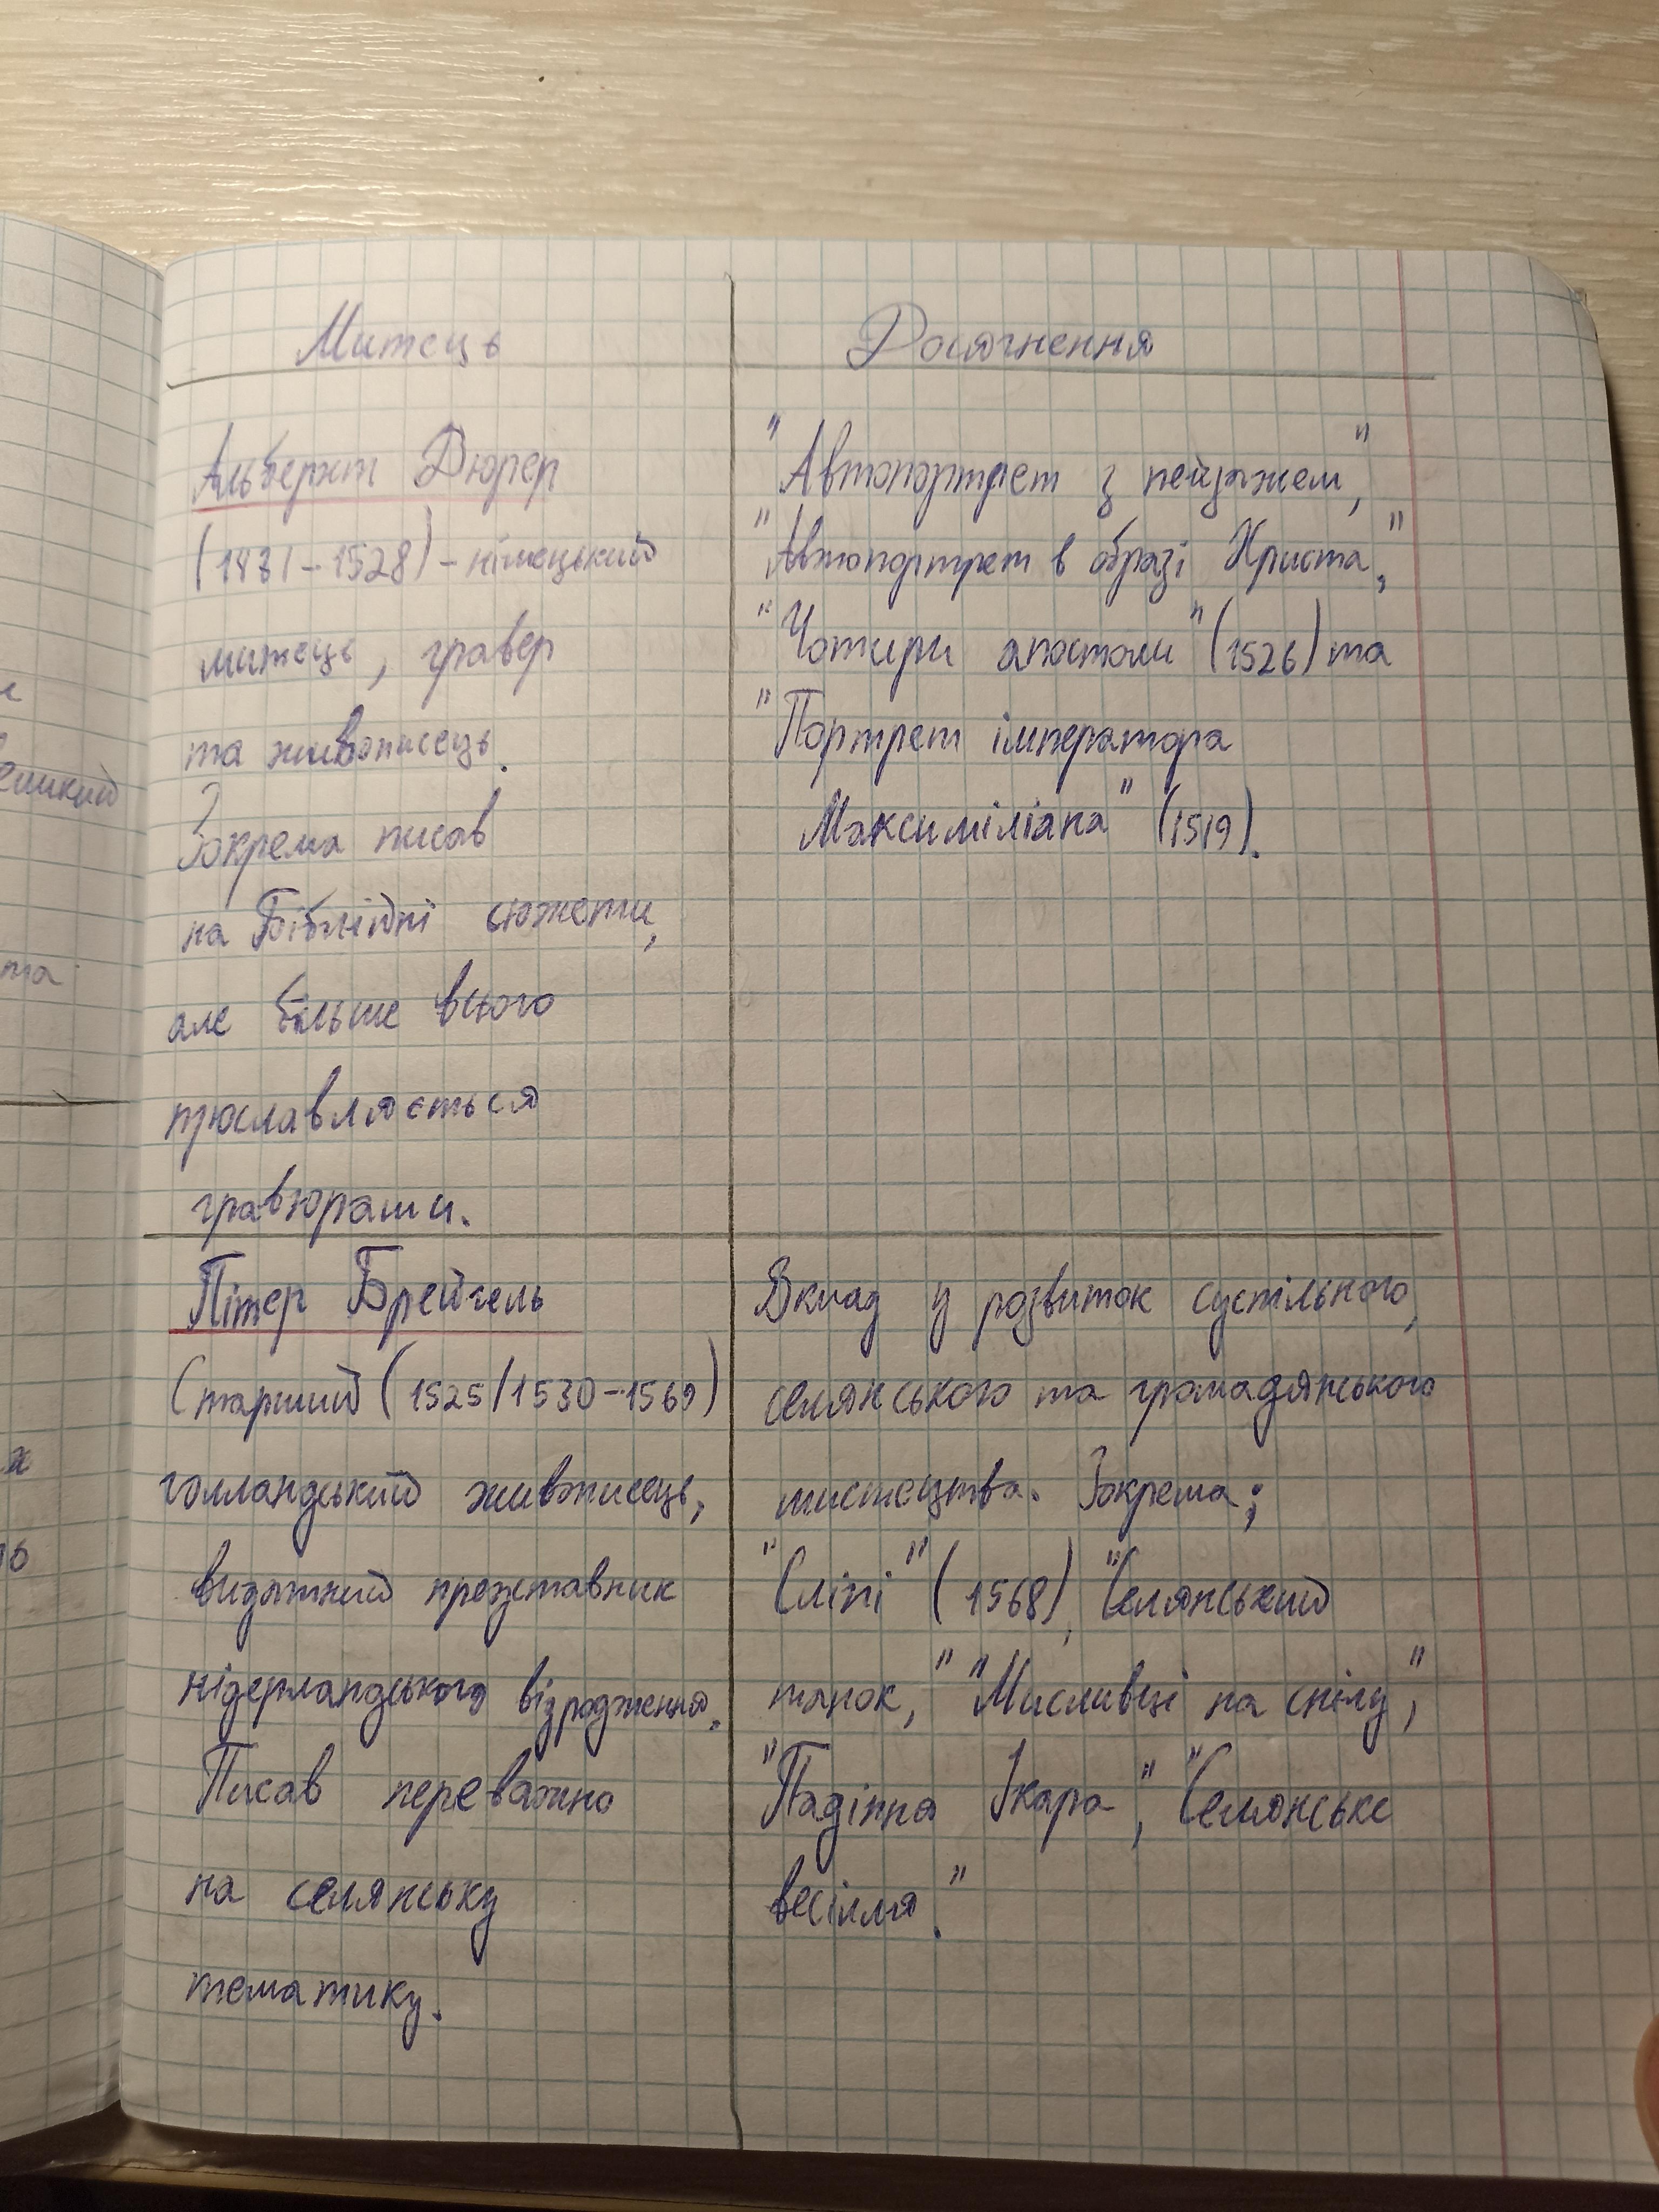 Митець
Досягнення
Альберхт Дюрер
(1471-1528) - німецький
митець, гравер
та живописець.
Зокрема писав
на Біблійні сюжети,
але більше всього
прославляється
гравюрами.
"Автопортрет з пейзажем",
"Автопортрет в образі Христа",
"Чотири апостоли" (1526) та
"Портрет імператора
Максиміліана" (1519).
Пітер Брейгель
Старший (1525/1530-1569)
голландський живописець,
видатний представник
нідерландського відродження.
Писав переважно
на селянську
тематику.
Вклад у розвиток суспільного,
селянського та громадянського
мистецтва. Зокрема;
"Сліпі" (1568), "Селянський
танок", "Мисливці на снігу",
"Падіння Ікара", "Селянське
весілля."